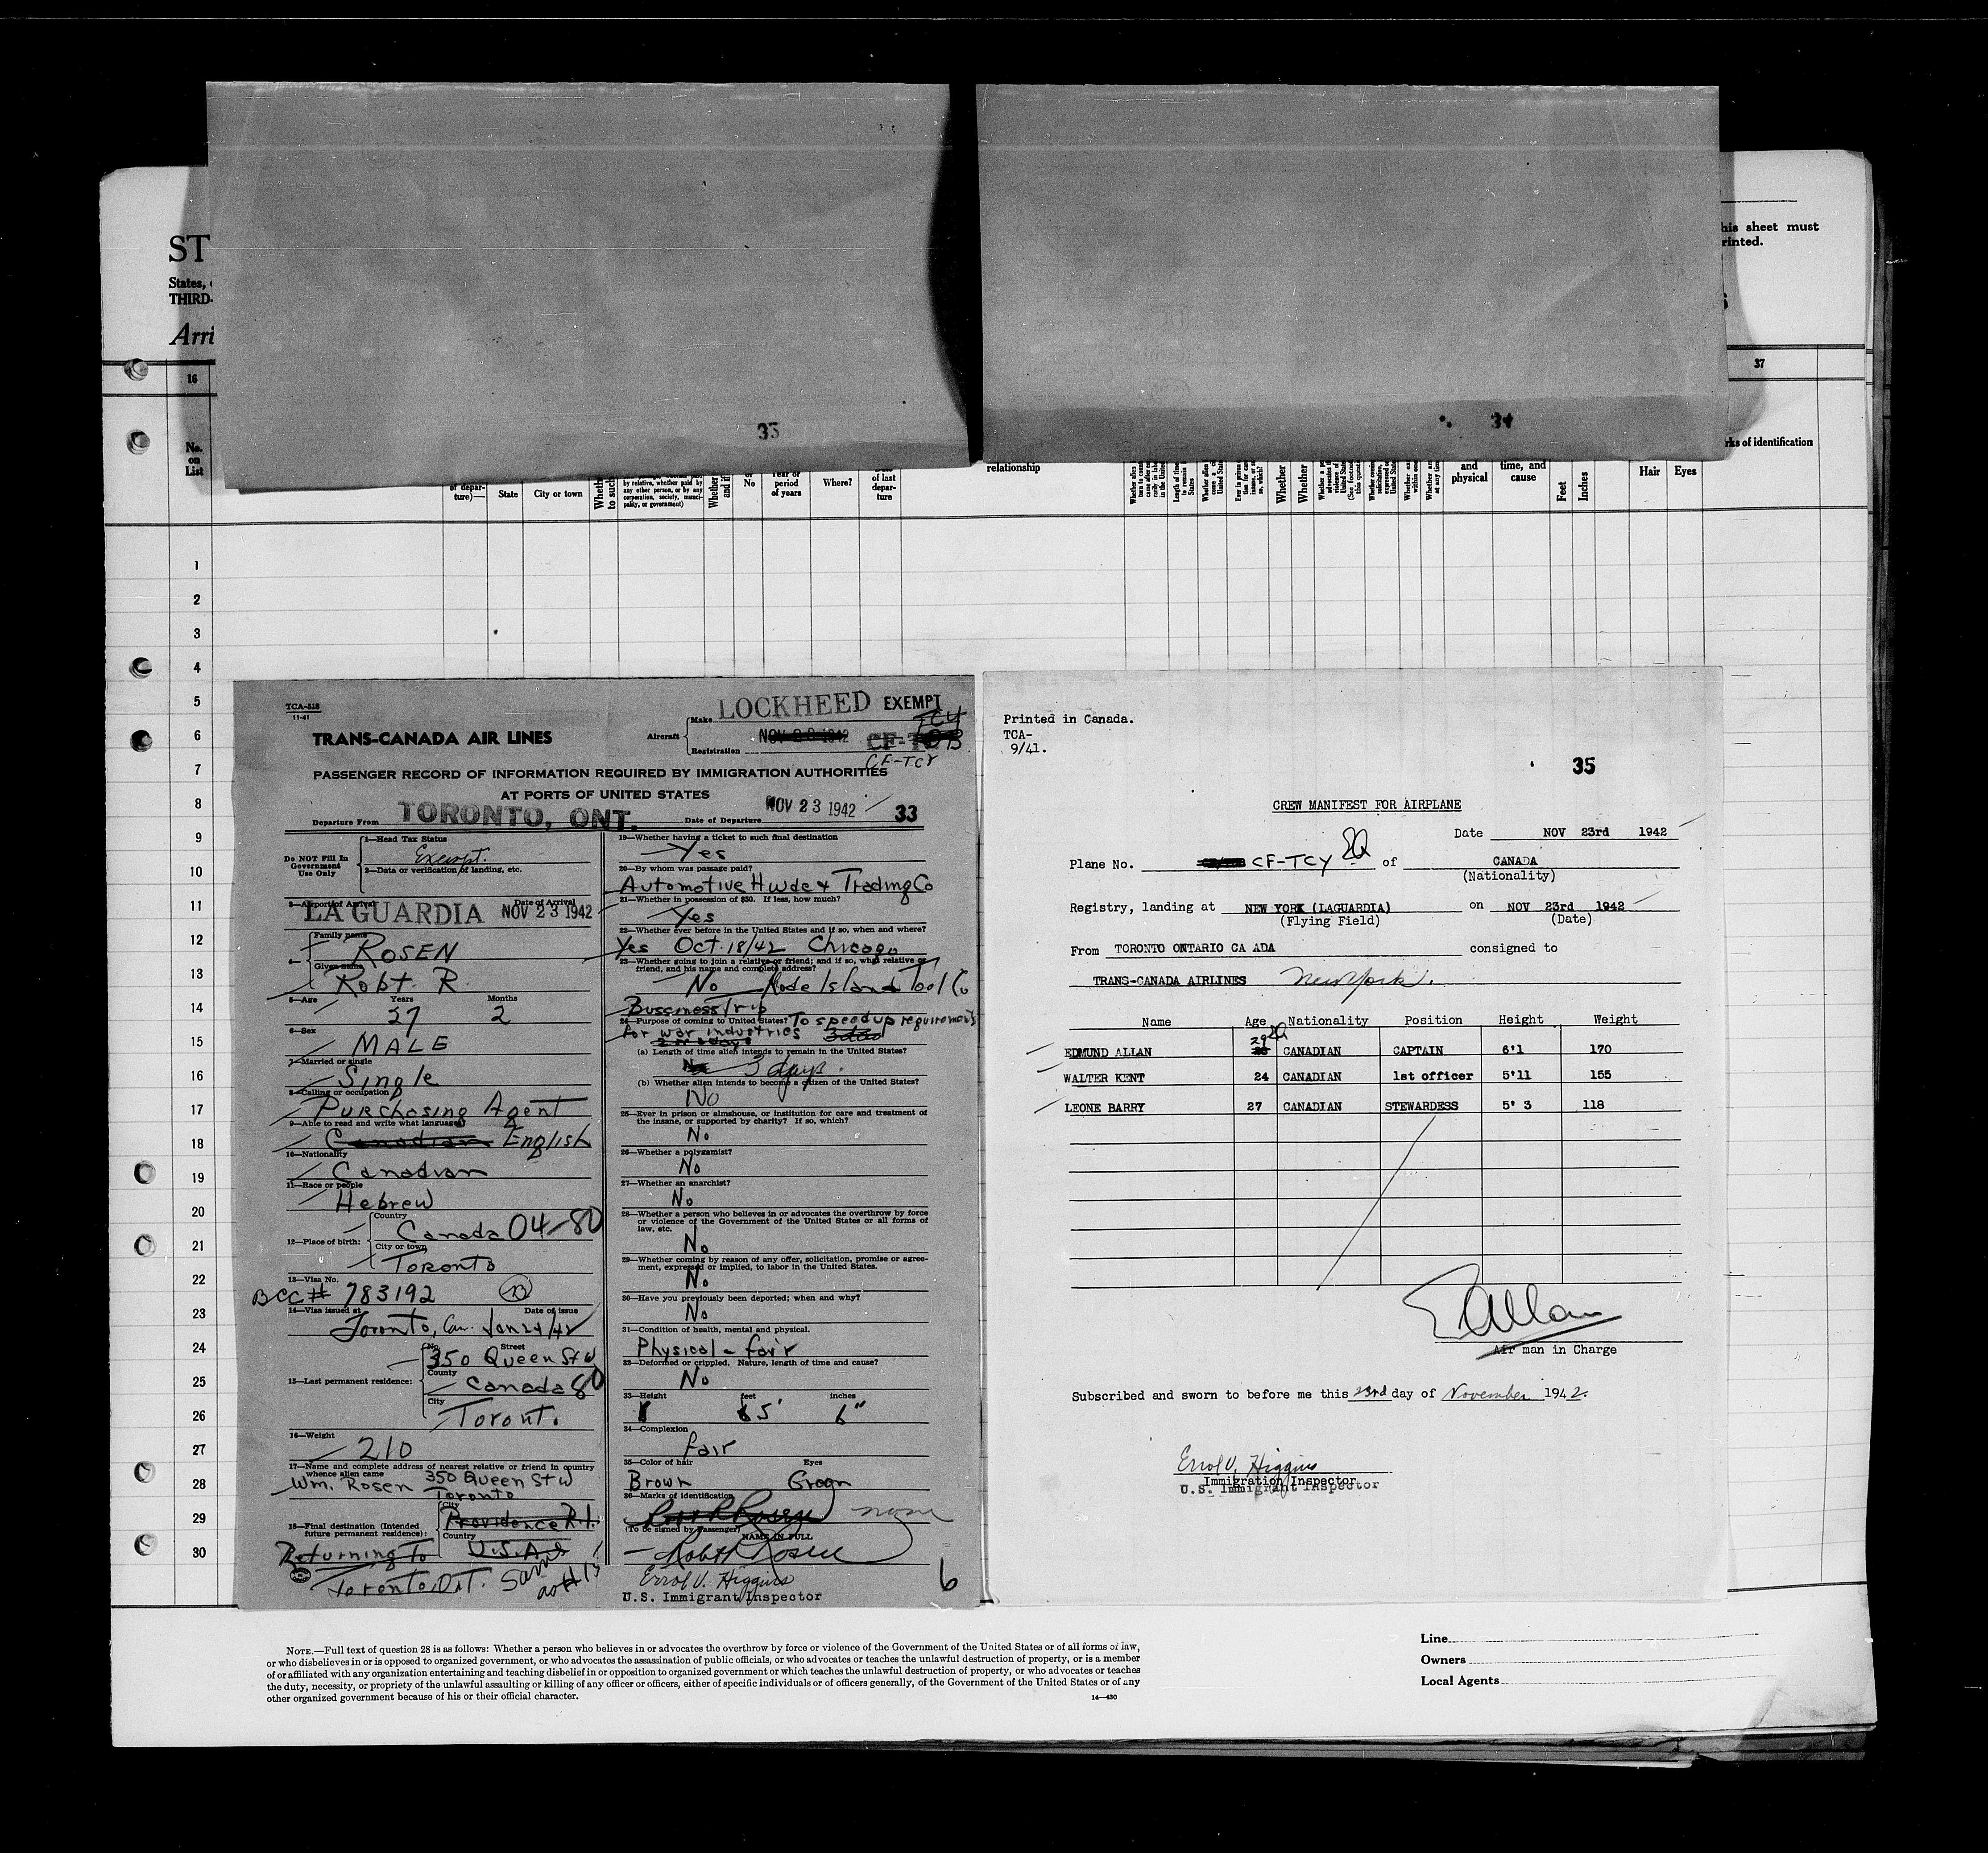 ST
States,
THIRD-
Arri
his sheet must
rinted.
16
37
33
34
No.
on
List
of depar-
ture)—
State
City or town
Whether
to such
by relative, whether paid by
any other person, or by any
corporation, society, munici-
pality, or government)
Whether
and if
No
Year or
period
of years
Where?
of last
depar-
ture
relationship
Whether
Whether
and
physical
time, and
cause
Feet
Inches
Hair
Eyes
rks of identification
1
2
3
4
5
6
7
8
9
10
11
12
13
14
15
16
17
18
19
20
21
22
23
24
25
26
27
28
29
30
TCA-518
11-41
TRANS-CANADA AIR LINES
Aircraft
Make LOCKHEED EXEMPT
TCY
Registration NOV 23 1942 CF-T
CF-TCY
PASSENGER RECORD OF INFORMATION REQUIRED BY IMMIGRATION AUTHORITIES
AT PORTS OF UNITED STATES
Departure From TORONTO, ONT. Date of Departure NOV 23 1942 33
Do NOT Fill In
Government
Use Only
1—Head Tax Status
Exempt.
2—Data or verification of landing, etc.
3—Airport of Arrival Date of Arrival
LA GUARDIA NOV 23 1942
4—
Family name
ROSEN
Given name
Robt. R.
5—Age Years Months
27 2
6—Sex
MALE
7—Married or single
Single
8—Calling or occupation
Purchasing Agent
9—Able to read and write what language?
Canadian English
10—Nationality
Canadian
11—Race or people
Hebrew
12—Place of birth:
Country
Canada 04-80
City or town
Toronto
13—Visa No.
BCC# 783192
14—Visa issued at Date of issue
Toronto, Can. Jan 24/42
15—Last permanent residence:
No. Street
350 Queen St W
County
Canada 80
City
Toronto
16—Weight
210
17—Name and complete address of nearest relative or friend in country
whence alien came 350 Queen St W
Wm. Rosen Toronto
18—Final destination (Intended
future permanent residence):
City
Providence R.I.
Country
U.S.A.
Returning To
Toronto, Ont. Same
as #15
19—Whether having a ticket to such final destination
Yes
20—By whom was passage paid?
Automotive Hwde & Trading Co
21—Whether in possession of $50. If less, how much?
Yes
22—Whether ever before in the United States and if so, when and where?
Yes Oct. 18/42 Chicago
23—Whether going to join a relative or friend; and if so, what relative or
friend, and his name and complete address?
No Rode Island Tool Co
Bussiness Trip
24—Purpose of coming to United States? To speed up requirements
for war industries
(a) Length of time alien intends to remain in the United States?
3 days.
(b) Whether alien intends to become a citizen of the United States?
No
25—Ever in prison or almshouse, or institution for care and treatment of
the insane, or supported by charity? If so, which?
No
26—Whether a polygamist?
No
27—Whether an anarchist?
No
28—Whether a person who believes in or advocates the overthrow by force
or violence of the Government of the United States or all forms of
law, etc.
No
29—Whether coming by reason of any offer, solicitation, promise or agree-
ment, expressed or implied, to labor in the United States.
No
30—Have you previously been deported; when and why?
No
31—Condition of health, mental and physical.
Physical - fair
32—Deformed or crippled. Nature, length of time and cause?
No
33—Height feet inches
5' 6"
34—Complexion
fair
35—Color of hair Eyes
Brown Green
36—Marks of identification
none
(To be signed by Passenger) NAME IN FULL
Robt R Rosen
Errol V. Higgins
U.S. Immigrant Inspector
6
Printed in Canada.
TCA-
9/41.
35
CREW MANIFEST FOR AIRPLANE
Date NOV 23rd 1942
Plane No. CF-TCY of CANADA
(Nationality)
Registry, landing at NEW YORK (LAGUARDIA) on NOV 23rd 1942
(Flying Field) (Date)
From TORONTO ONTARIO CA ADA consigned to
TRANS-CANADA AIRLINES New York.
Name Age Nationality Position Height Weight
EDMUND ALLAN 29 CANADIAN CAPTAIN 6'1 170
WALTER KENT 24 CANADIAN 1st officer 5'11 155
LEONE BARRY 27 CANADIAN STEWARDESS 5' 3 118
E Allan
Air man in Charge
Subscribed and sworn to before me this 23rd day of November 1942.
Errol V. Higgins
Immigration Inspector
U.S. Immigrant Inspector
NOTE.—Full text of question 28 is as follows: Whether a person who believes in or advocates the overthrow by force or violence of the Government of the United States or of all forms of law,
or who disbelieves in or is opposed to organized government, or who advocates the assassination of public officials, or who advocates or teaches the unlawful destruction of property, or is a member
of or affiliated with any organization entertaining and teaching disbelief in or opposition to organized government or which teaches the unlawful destruction of property, or who advocates or teaches
the duty, necessity, or propriety of the unlawful assaulting or killing of any officer or officers, either of specific individuals or of officers generally, of the Government of the United States or of any
other organized government because of his or their official character.
14—430
Line
Owners
Local Agents